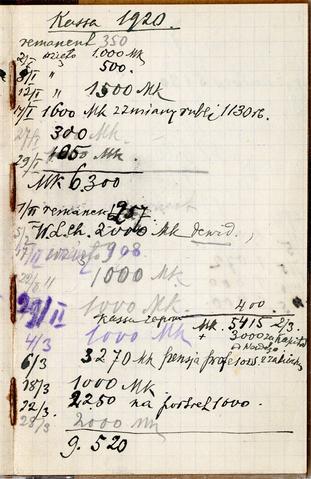 Kassa 1920.
remanent 350
2/I wzięto 1.000 Mk
8/II " 500.
12/II " 1500 Mk
17/II 1600 Mk zamiany rubli 1130 rs.
27/II 300 Mk
29/I Mk.
MK 6.300
1/II remanent 957.
5/II W.L.Ch. 2000 Mk dewid.,
17/II wzięto 908
" 1000 Mk.
29/II 1000 Mk.
400
Kassa zapom Mk. 5415 2/3.
4/3 1000 Mk. + 3000
6/3 3270 Mk pensja profesors.
15/3 1000 MK.
22/3. 2250 na portret 1000.
28/3 2000 Mk
9.520